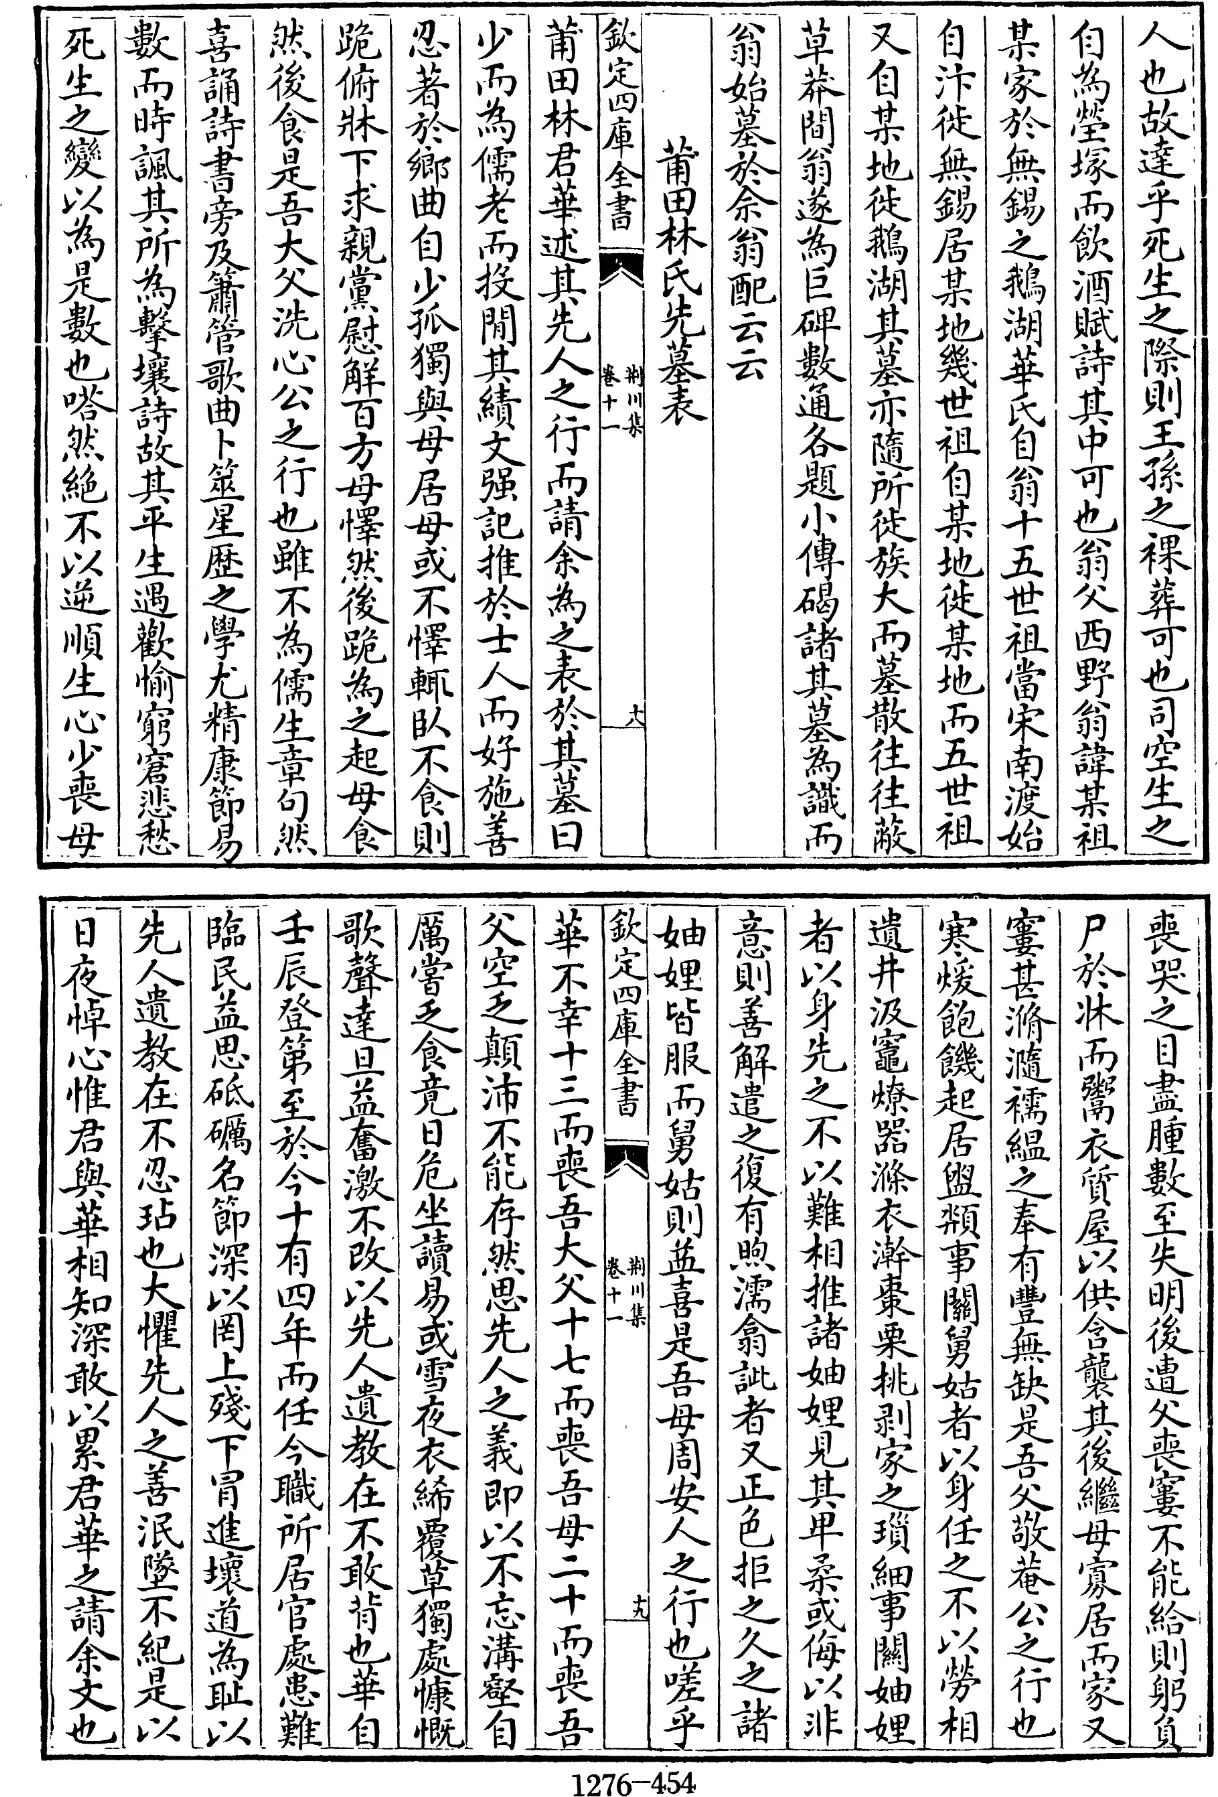 人也故達乎死生之際則王孫之裸葬可也司空生之
自為塋塚而飲酒賦詩其中可也翁父西野翁諱某祖
某家於無錫之鵝湖華氏自翁十五世祖當宋南渡始
自汴徙無錫居某地幾世祖自某地徙某地而五世祖
又自某地徙鵝湖其墓亦隨所徙族大而墓散往往蔽
草莽間翁遂為巨碑數通各題小傳碣諸其墓為識而
翁始墓於佘翁配云云
莆田林氏先墓表
欽定四庫全書
荆川集
卷十一
十八
莆田林君華述其先人之行而請余為之表於其墓曰
少而為儒老而投閒其績文强記推於士人而好施善
忍著於鄉曲自少孤獨與母居母或不懌輒臥不食則
跪俯牀下求親黨慰解百方母懌然後跪為之起母食
然後食是吾大父洗心公之行也雖不為儒生章句然
喜誦詩書旁及簫管歌曲卜筮星歷之學尤精康節易
數而時諷其所為擊壤詩故其平生遇歡愉窮窘悲愁
死生之變以為是數也嗒然絶不以逆順生心少喪母
喪哭之目盡腫數至失明後遭父喪窶不能給則躬負
尸於牀而鬻衣質屋以供含襲其後繼母寡居而家又
窶甚滫瀡襦緼之奉有豐無缺是吾父敬菴公之行也
寒煖飽饑起居盥頮事關舅姑者以身任之不以勞相
遺井汲竈燎器滌衣澣棗栗挑剥家之瑣細事關妯娌
者以身先之不以難相推諸妯娌見其卑柔或侮以非
意則善解遣之復有煦濡翕訿者又正色拒之久之諸
妯娌皆服而舅姑則益喜是吾母周安人之行也嗟乎
欽定四庫全書
荆川集
卷十一
十九
華不幸十三而喪吾大父十七而喪吾母二十而喪吾
父空乏顛沛不能存然思先人之義即以不忘溝壑自
厲嘗乏食竟日危坐讀易或雪夜衣絺覆草獨處慷慨
歌聲達旦益奮激不改以先人遺教在不敢背也華自
壬辰登第至於今十有四年而任今職所居官處患難
臨民益思砥礪名節深以罔上殘下冐進壞道為耻以
先人遺教在不忍玷也大懼先人之善泯墜不紀是以
日夜悼心惟君與華相知深敢以累君華之請余文也
1276-454